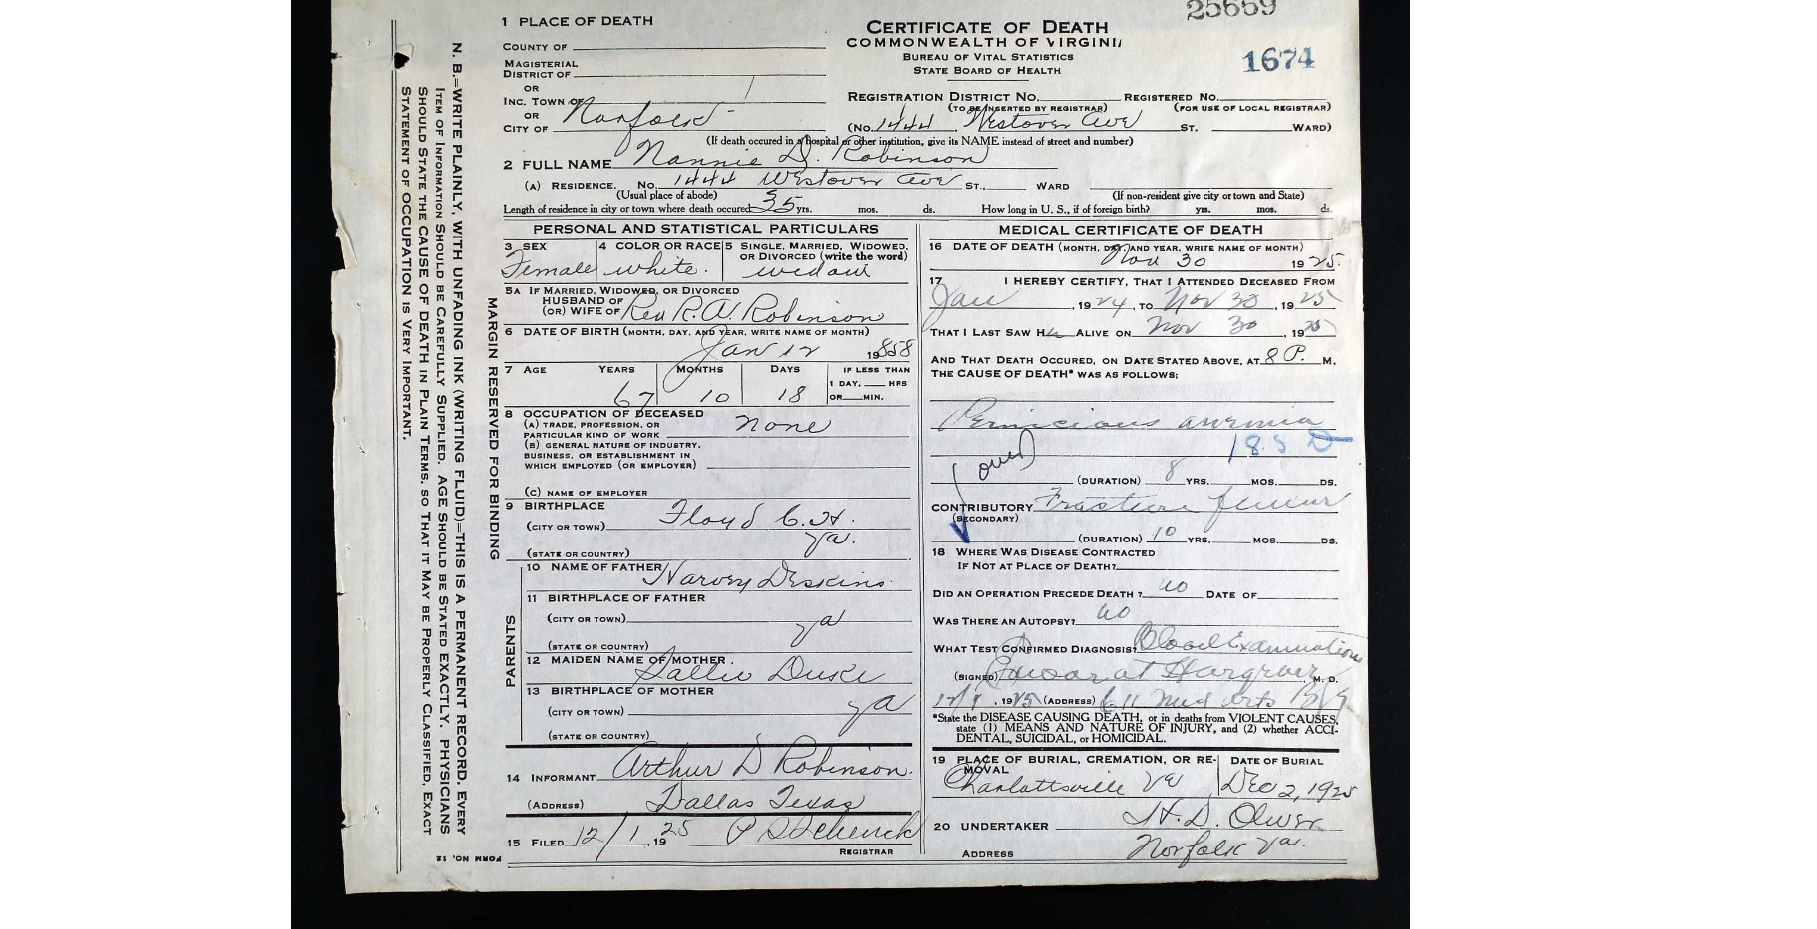 25659
1674
CERTIFICATE OF DEATH
COMMONWEALTH OF VIRGINI
BUREAU OF VITAL STATISTICS
STATE BOARD OF HEALTH
1 PLACE OF DEATH
COUNTY OF
MAGISTERIAL
DISTRICT OF
OR
INC. TOWN OF
OR
CITY OF Norfolk
REGISTRATION DISTRICT NO. REGISTERED NO.
(TO BE INSERTED BY REGISTRAR) (FOR USE OF LOCAL REGISTRAR)
(No. 1444 Westover Ave ST. WARD)
(If death occured in a hospital or other institution, give its NAME instead of street and number)
2 FULL NAME Nannie D. Robinson
(A) RESIDENCE. No. 1444 Westover Ave ST., WARD
(Usual place of abode) (If non-resident give city or town and State)
Length of residence in city or town where death occured 35 yrs. mos. ds. How long in U. S., if of foreign birth? yrs. mos. ds.
PERSONAL AND STATISTICAL PARTICULARS
3 SEX 4 COLOR OR RACE 5 SINGLE, MARRIED, WIDOWED,
OR DIVORCED (write the word)
Female white. widow
5A IF MARRIED, WIDOWED, OR DIVORCED
HUSBAND OF
(OR) WIFE OF Rev R. A. Robinson
6 DATE OF BIRTH (MONTH, DAY, AND YEAR, WRITE NAME OF MONTH)
Jan 12 1858
7 AGE YEARS MONTHS DAYS IF LESS THAN
1 DAY, HRS
67 10 18 OR MIN.
8 OCCUPATION OF DECEASED
(A) TRADE, PROFESSION, OR
PARTICULAR KIND OF WORK none
(B) GENERAL NATURE OF INDUSTRY,
BUSINESS, OR ESTABLISHMENT IN
WHICH EMPLOYED (OR EMPLOYER)
(C) NAME OF EMPLOYER
9 BIRTHPLACE
(CITY OR TOWN) Floyd C. H.
(STATE OR COUNTRY) Va.
PARENTS
10 NAME OF FATHER Harvey Deskins
11 BIRTHPLACE OF FATHER
(CITY OR TOWN)
(STATE OR COUNTRY) Va
12 MAIDEN NAME OF MOTHER Sallie Duske
13 BIRTHPLACE OF MOTHER
(CITY OR TOWN) Va
(STATE OR COUNTRY)
14 INFORMANT Arthur D Robinson.
(ADDRESS) Dallas Texas
15 FILED 12/1, 1925 P S Schenck
REGISTRAR
MEDICAL CERTIFICATE OF DEATH
16 DATE OF DEATH (MONTH, DAY AND YEAR, WRITE NAME OF MONTH)
Nov 30 1925.
17 I HEREBY CERTIFY, THAT I ATTENDED DECEASED FROM
Jan, 1924, TO Nov 30, 1925
THAT I LAST SAW Her ALIVE ON Nov 30, 1925
AND THAT DEATH OCCURED, ON DATE STATED ABOVE, AT 8 P. M.
THE CAUSE OF DEATH* WAS AS FOLLOWS:
Pernicious anemia
(over)
(DURATION) 8 YRS. MOS. DS.
CONTRIBUTORY Fracture femur
(SECONDARY)
(DURATION) 10 YRS. MOS. DS.
18 WHERE WAS DISEASE CONTRACTED
IF NOT AT PLACE OF DEATH?
DID AN OPERATION PRECEDE DEATH? no DATE OF
WAS THERE AN AUTOPSY? no
WHAT TEST CONFIRMED DIAGNOSIS? Blood Examination
(SIGNED) Hargrave, M. D.
1925 (ADDRESS) 611 Med Arts Bldg
*State the DISEASE CAUSING DEATH, or in deaths from VIOLENT CAUSES,
state (1) MEANS AND NATURE OF INJURY, and (2) whether ACCI-
DENTAL, SUICIDAL, or HOMICIDAL.
19 PLACE OF BURIAL, CREMATION, OR RE- DATE OF BURIAL
MOVAL
Charlattsville Va Dec 2, 1925
20 UNDERTAKER H. D. Oliver
ADDRESS Norfolk Va.
MARGIN RESERVED FOR BINDING
N. B.—WRITE PLAINLY, WITH UNFADING INK (WRITING FLUID)—THIS IS A PERMANENT RECORD. EVERY
ITEM OF INFORMATION SHOULD BE CAREFULLY SUPPLIED. AGE SHOULD BE STATED EXACTLY. PHYSICIANS
SHOULD STATE THE CAUSE OF DEATH IN PLAIN TERMS, SO THAT IT MAY BE PROPERLY CLASSIFIED. EXACT
STATEMENT OF OCCUPATION IS VERY IMPORTANT.
FORM NO. 12